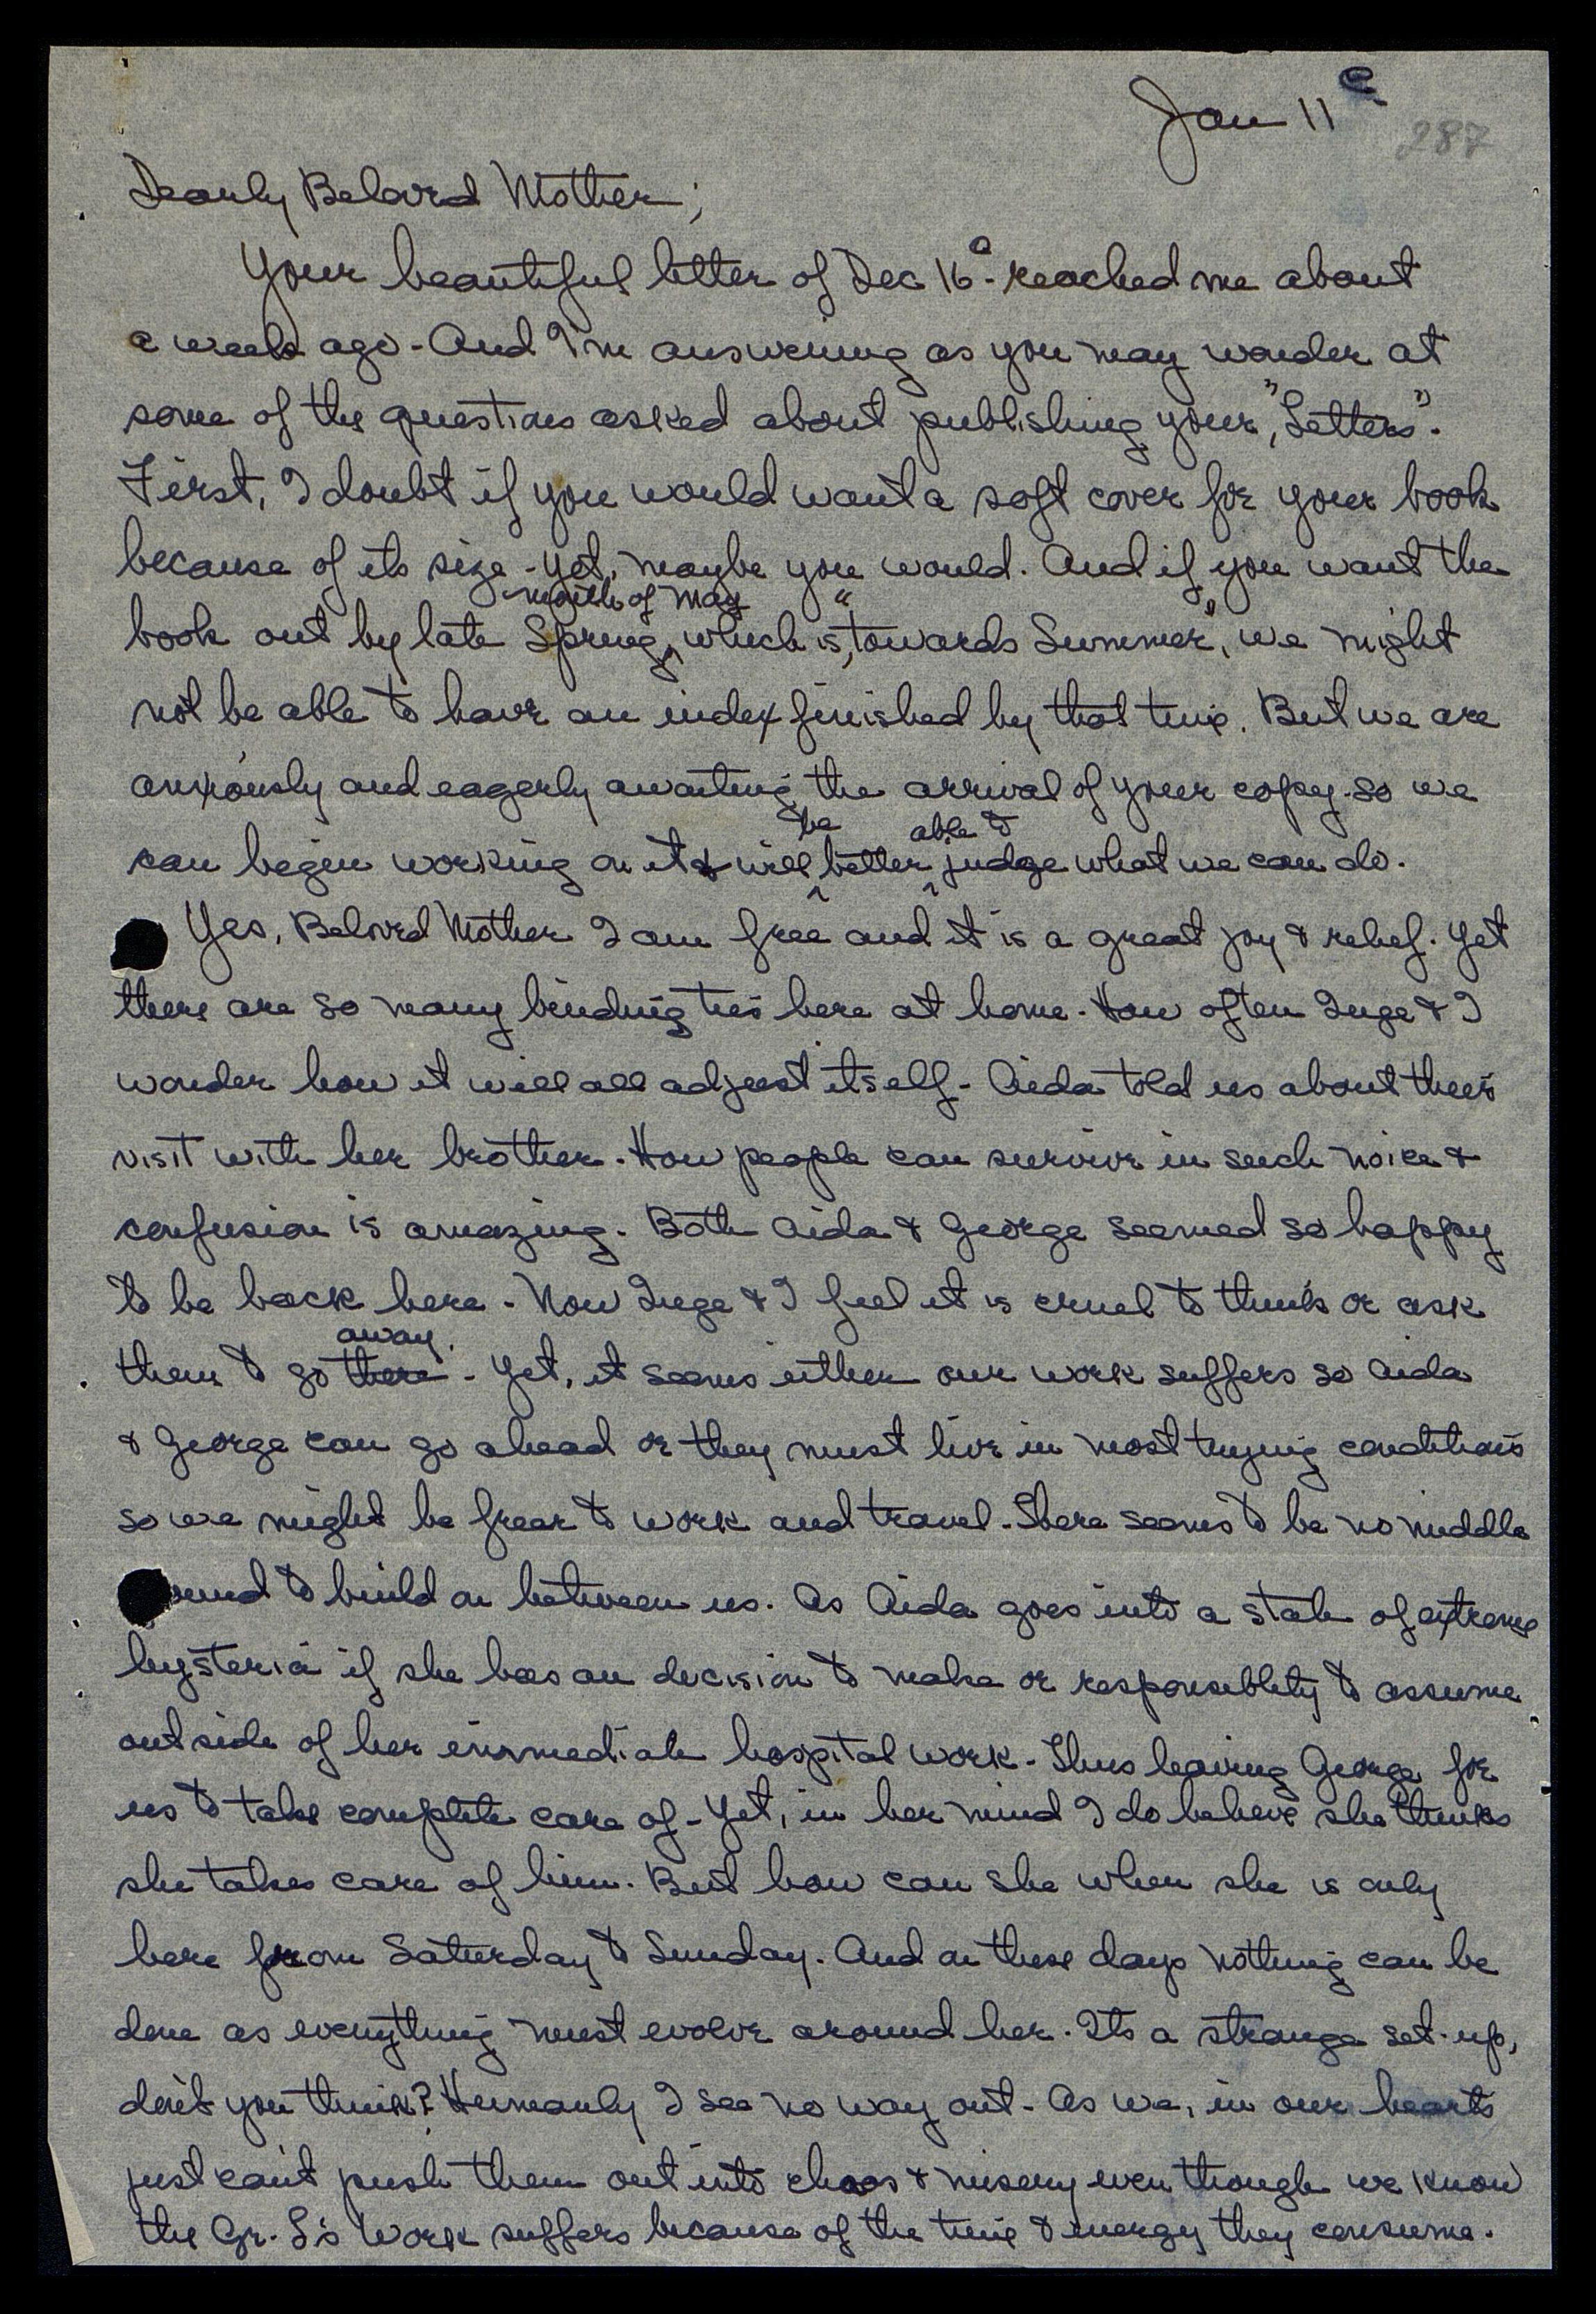 Jan 11e
287
Dearly Beloved Mother;
Your beautiful letter of Dec 16e - reached me about
a week ago - And I'm answering as you may wonder at
some of the questions asked about publishing your, "Letters".
First, I doubt if you would want a soft cover for your book
because of its size - yet, maybe you would. And if you want the
month of May
book out by late Spring, which is, "towards Summer", we might
not be able to have an index finished by that time. But we are
anxiously and eagerly awaiting the arrival of your copy - so we
be able to
can begin working on it & will better judge what we can do.
Yes, Beloved Mother I am free and it is a great joy & relief. Yet
there are so many binding ties here at home. How often Inge & I
wonder how it will all adjust itself - Aida told us about their
visit with her brother. How people can survive in such noice &
confusion is amazing. Both Aida & George seemed so happy
to be back here - Now Inge & I feel it is cruel to think or ask
away
them to go there - Yet, it seems either our work suffers so Aida
& George can go ahead or they must live in most trying conditions
so we might be freer to work and travel - There seems to be no middle
ound to build on between us. As Aida goes into a state of extreme
hysteria if she has an decision to make or responseblety to assume
outside of her immediate hospital work - Thus leaving George for
us to take complete care of - Yet, in her mind I do believe she thinks
she takes care of him. But how can she when she is only
here from Saturday to Sunday. And on these days nothing can be
done as everything must evolve around her. Its a strange set-up,
don't you think? Humanly I see no way out - As we, in our hearts
just can't push them out into chaos & misery even though we know
the Gr. L's Work suffers because of the time & energy they consume.